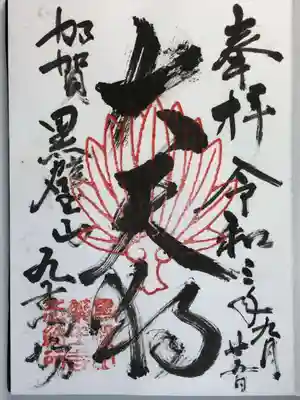 奉拝 令和三年九月
廿五日
大天狗
加賀 黒壁山 九万坊